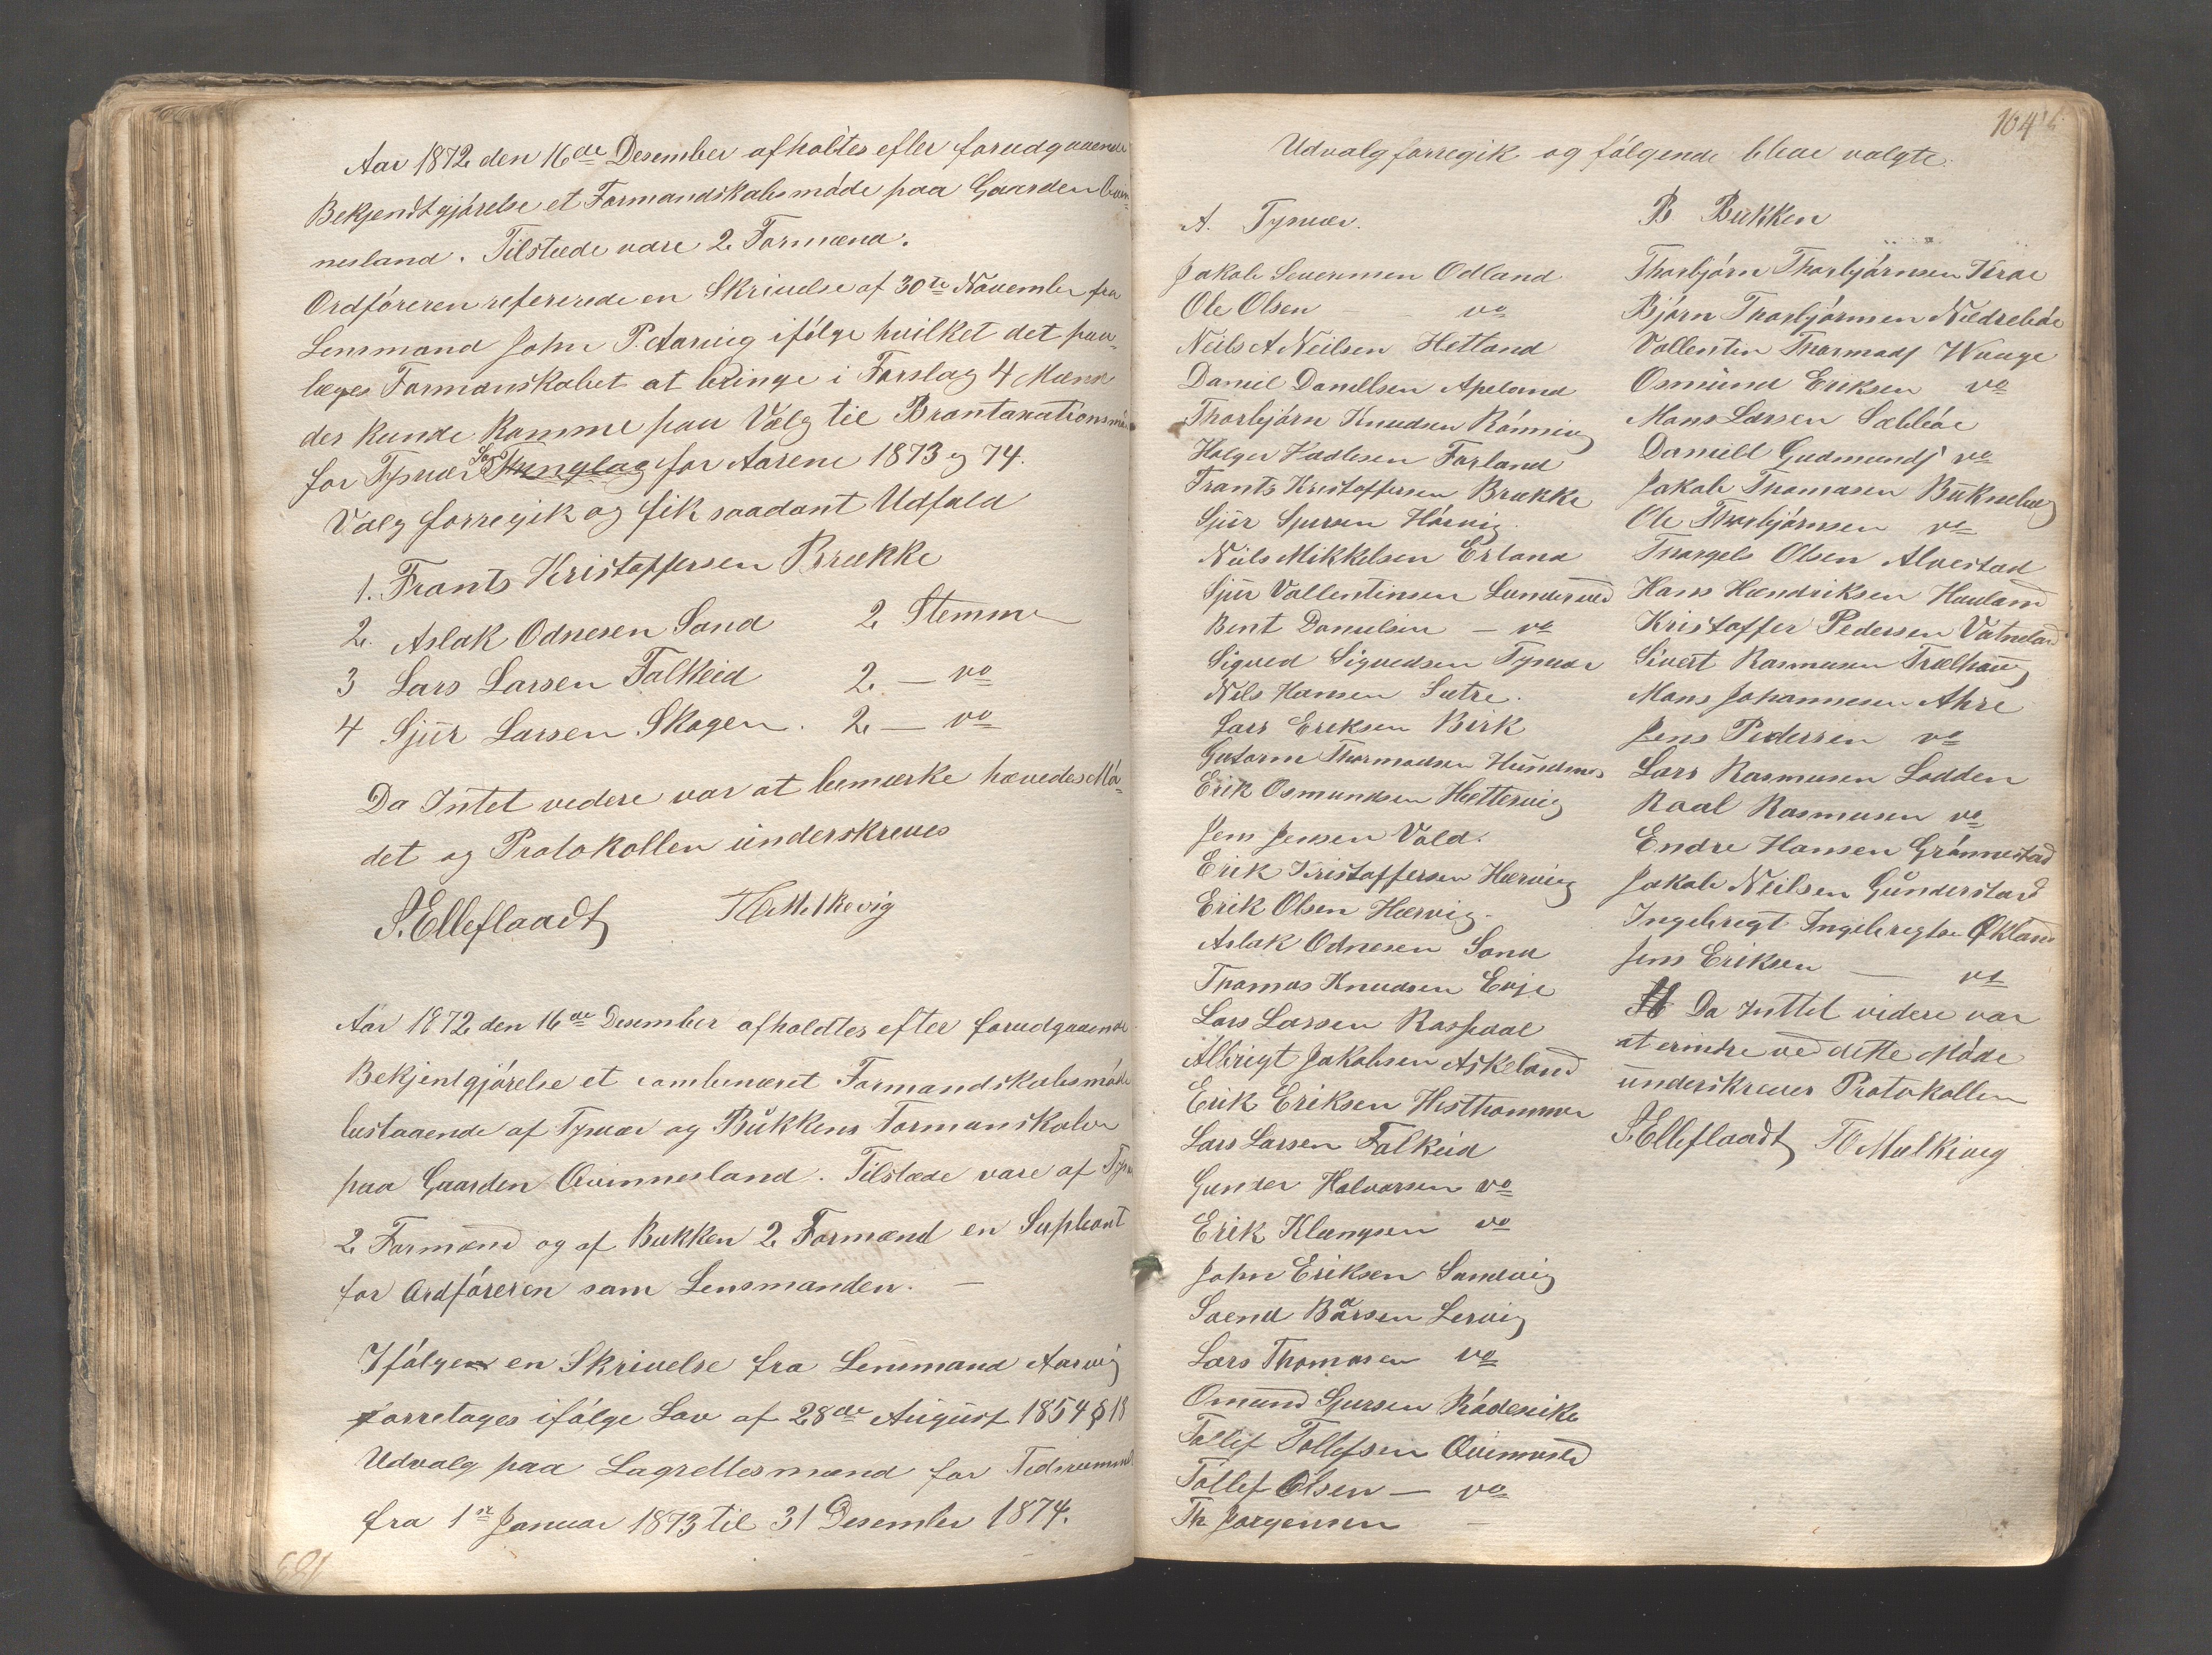 Aar 1872 den 16de Desember afholtes efter forudgaaende
Bekjendtgjórelse et Formandskabsmóde paa Gaarden Qvin-
nesland. Tilstæde vare 2 Formænd.
Ordfóreren refererede en Skrivelse af 30te November fra
Lensmand John P. Aarvig ifólge hvilket det paa-
lægges Formanskabet at bringe i Forslag 4 Mænd
der kunde komme paa Valg til Brantaxationsmænd
for Tysvær Sogn Thinglag for Aarene 1873 og 74.
Valg forregik og fik saadant Udfald
1. Frants Kristoffersen Brække
2. Aslak Odnesen Sand 2 Stemme
3 Lars Larsen Falkeid 2 — do
4 Sjur Larsen Skogen. 2 — do
Da Intet videre var at bemærke hævedes Mó-
det og Protokollen underskreves
S. Elleflaadt T O Mælkevig
Aar 1872 den 16de Desember afholdtes efter forudgaaende
Bekjentgjórelse et combineret Formandskabsmóde
bestaaende af Tysvær og Bukkens Formanskaber
paa Gaarden Qvinnesland. Tilstæde vare af Tysvær
2 Formænd og af Bukken 2 Formænd en Supleant
for Ordfóreren som Lensmanden. —
Ifólge en Skrivelse fra Lensmand Aarvig
forretages ifólge Lov af 28de August 1854 § 13
Udvalg paa Lagrettesmænd for Tidsrummet
fra 1ste Januar 1873 til 31 Desember 1874.
104
Udvalg forregik og fólgende bleve valgte.
A. Tysvær.
Jakob Severinsen Odland
Ole Olsen — do
Neils A Neilsen Hetland
Daniel Danellsen Apeland
Thorbjórn Knudsen Rónnivig
Holger Kadlesen Forland
Frants Kristoffersen Brække
Sjur Sjursen Hórvig.
Neils Mikkelsen Erland
Sjur Vallentinsen Lundersvold
Bent Danielsen — do
Sigved Sigvedsen Tysvær
Nils Hansen Sætre.
Lars Eriksen Birk
Gutorm Thormodsen Hundsnes
Erik Osmundsen Hettervig
Jens Jensen Vold.
Erik Kristoffersen Hærvig
Erik Olsen Hærvig.
Aslak Odnesen Sand
Thomas Knudsen Erje
Lars Larsen Rossadal
Albrigt Jakobsen Askeland
Erik Eriksen Hesthammer
Lars Larsen Falkeid
Gunder Halvorsen do
Erik Klungsen do
John Eriksen Sandvig
Svend Baarsen Lervig
Lars Thomasen do
Omund Sjursen Ródesike
Tollef Tollefsen Qvinnesld
Tollef Olsen — do
Th Jorgensen —
B Bukken
Thorbjórn Thorbjórnsen Kroe
Bjórn Thorbjórnsen Nedrebóe
Vallentin Thormods Waage
Osmund Eriksen do
Mons Larsen Sæbbóe
Daniell Gudmunds do
Jakob Thomasen Bukneberg
Ole Thorbjórnsen do
Thorgels Olsen Alvestad
Hans Hendriksen Hauland
Kristoffer Pedersen Vatneland
Sivert Rasmusen Trælhaug
Mons Johannesen Ahre
Jens Pedersen do
Lars Rasmusen Lodden
Roal Rasmusen do
Endre Hansen Grónnestad
Jakob Neilsen Gunderstad
Ingebregt Ingebregtsen Økland
Jens Eriksen — do
Da Inttet videre var
at erindre ved dette Móde
underskrever Protokollen
S. Elleflaadt T O Mælkevig